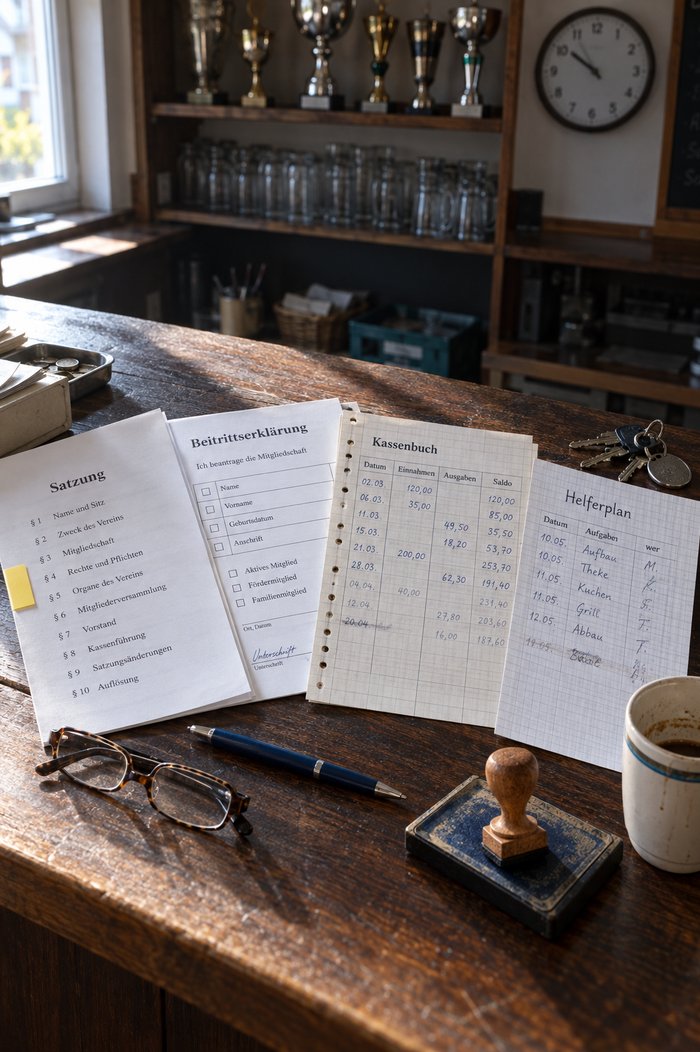 Satzung
§ 1 Name und Sitz
§ 2 Zweck des Vereins
§ 3 Mitgliedschaft
§ 4 Rechte und Pflichten
§ 5 Organe des Vereins
§ 6 Mitgliederversammlung
§ 7 Vorstand
§ 8 Kassenführung
§ 9 Satzungsänderungen
§ 10 Auflösung
Beitrittserklärung
Ich beantrage die Mitgliedschaft
Name
Vorname
Geburtsdatum
Anschrift
Aktives Mitglied
Fördermitglied
Familienmitglied
Ort, Datum
Unterschrift
Unterschrift
Kassenbuch
Datum Einnahmen Ausgaben Saldo
02.03. 120,00 120,00
06.03. 35,00 85,00
11.03. 49,50 35,50
15.03. 18,20 53,70
21.03. 200,00 253,70
28.03. 62,30 191,40
04.04. 40,00 231,40
12.04. 27,80 203,60
20.04. 16,00 187,60
Helferplan
Datum Aufgaben wer
10.05. Aufbau M.
10.05. Theke K.
11.05. Kuchen
11.05. Grill T.
12.05. Abbau T.
12 11 10 9 8 7 6 5 4 3 2 1